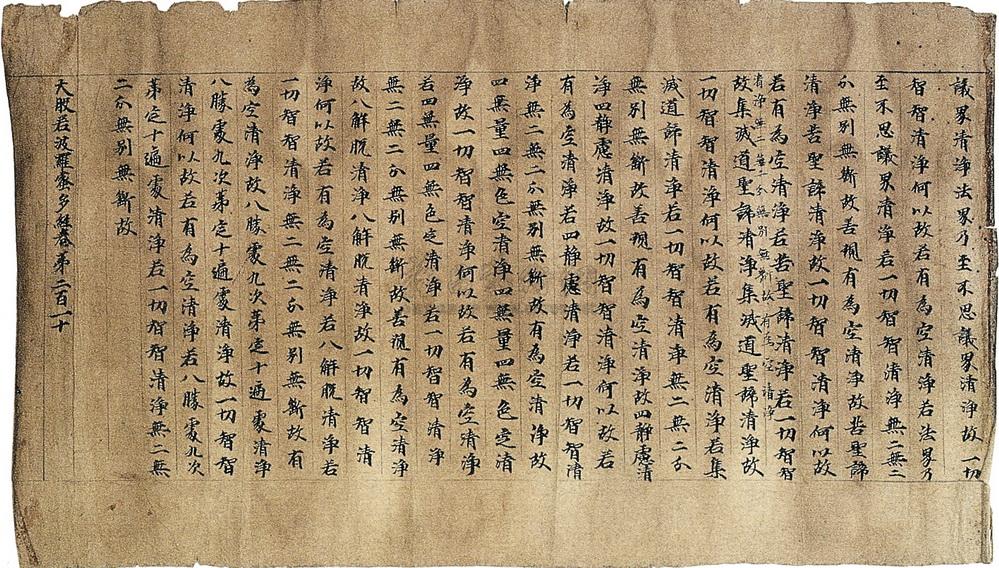 議界清淨法界乃至不思議界清淨故一切
智智清淨何以故若有為空清淨若法界乃
至不思議界清淨若一切智智清淨無二無二
分無別無斷故善現有為空清淨故苦聖諦
清淨苦聖諦清淨故一切智智清淨何以故
若有為空清淨若苦聖諦清淨若一切智智
清淨無二無二分無別無斷故有為空清淨
故集滅道聖諦清淨集滅道聖諦清淨故
一切智智清淨何以故若有為空清淨若集
滅道諦清淨若一切智智清淨無二無二分
無別無斷故善現有為空清淨故四靜慮清
淨四靜慮清淨故一切智智清淨何以故若
有為空清淨若四靜慮清淨若一切智智清
淨無二無二分無別無斷故有為空清淨故
四無量四無色空清淨四無量四無色定清
淨故一切智智清淨何以故若有為空清淨
若四無量四無色定清淨若一切智智清淨
無二無二分無別無斷故善現有為空清淨
故八解脫清淨八解脫清淨故一切智智清
淨何以故若有為空清淨若八解脫清淨若
一切智智清淨無二無二分無別無斷故有
為空清淨故八勝處九次苐定十遍處清淨
八勝處九次苐定十遍處清淨故一切智智
清淨何以故若有為空清淨若八勝處九次
苐定十遍處清淨若一切智智清淨無二無
二分無別無斷故
大般若波羅蜜多經卷第二百一十